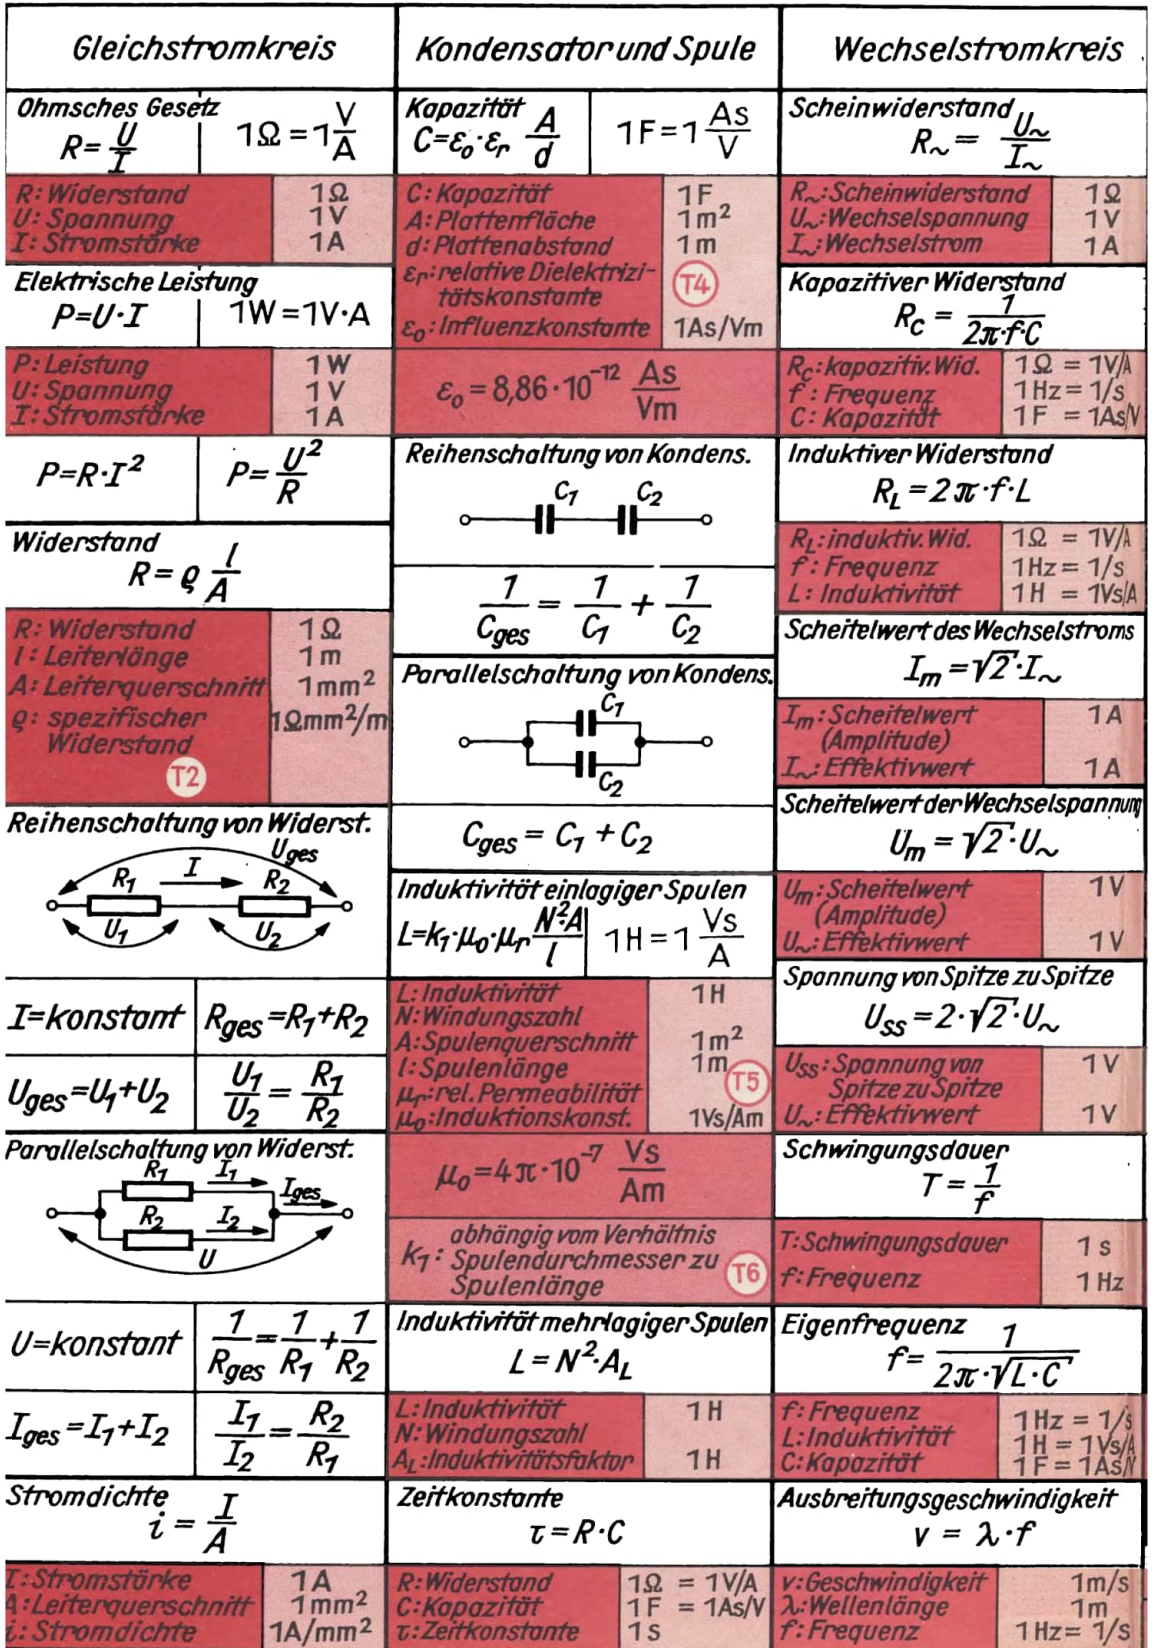 Gleichstromkreis
Ohmsches Gesetz
R = U/I
1Ω = 1 V/A
R: Widerstand 1Ω
U: Spannung 1V
I: Stromstärke 1A
Elektrische Leistung
P=U·I
1W=1V·A
P: Leistung 1W
U: Spannung 1V
I: Stromstärke 1A
P=R·I²
P= U²/R
Widerstand
R = ϱ l/A
R: Widerstand 1Ω
l: Leiterlänge 1m
A: Leiterquerschnitt 1mm²
ϱ: spezifischer 1Ωmm²/m
Widerstand
T2
Reihenschaltung von Widerst.
U_ges
R₁ I R₂
U₁ U₂
I=konstant
R_ges=R₁+R₂
U_ges=U₁+U₂
U₁/U₂ = R₁/R₂
Parallelschaltung von Widerst.
R₁ I₁
I_ges
R₂ I₂
U
U=konstant
1/R_ges = 1/R₁ + 1/R₂
I_ges=I₁+I₂
I₁/I₂ = R₂/R₁
Stromdichte
i = I/A
I: Stromstärke 1A
A: Leiterquerschnitt 1mm²
i: Stromdichte 1A/mm²
Kondensator und Spule
Kapazität
C=ε₀·εᵣ A/d
1F=1 As/V
C: Kapazität 1F
A: Plattenfläche 1m²
d: Plattenabstand 1m
εᵣ: relative Dielektrizi-
tätskonstante
T4
ε₀: Influenzkonstante 1As/Vm
ε₀ = 8,86·10⁻¹² As/Vm
Reihenschaltung von Kondens.
C₁ C₂
1/C_ges = 1/C₁ + 1/C₂
Parallelschaltung von Kondens.
C₁
C₂
C_ges = C₁ + C₂
Induktivität einlagiger Spulen
L=k₁·μ₀·μᵣ N²·A/l
1H = 1 Vs/A
L: Induktivität 1H
N: Windungszahl
A: Spulenquerschnitt 1m²
l: Spulenlänge 1m
T5
μᵣ: rel. Permeabilität
μ₀: Induktionskonst. 1Vs/Am
μ₀ = 4π·10⁻⁷ Vs/Am
abhängig vom Verhältnis
k₁: Spulendurchmesser zu
Spulenlänge
T6
Induktivität mehrlagiger Spulen
L = N²·A_L
L: Induktivität 1H
N: Windungszahl
A_L: Induktivitätsfaktor 1H
Zeitkonstante
τ = R·C
R: Widerstand 1Ω = 1V/A
C: Kapazität 1F = 1As/V
τ: Zeitkonstante 1s
Wechselstromkreis
Scheinwiderstand
R~ = U~/I~
R~: Scheinwiderstand 1Ω
U~: Wechselspannung 1V
I~: Wechselstrom 1A
Kapazitiver Widerstand
R_C = 1/2π·f·C
R_C: kapazitiv. Wid. 1Ω = 1V/A
f: Frequenz 1Hz = 1/s
C: Kapazität 1F = 1As/V
Induktiver Widerstand
R_L = 2π·f·L
R_L: induktiv. Wid. 1Ω = 1V/A
f: Frequenz 1Hz = 1/s
L: Induktivität 1H = 1Vs/A
Scheitelwert des Wechselstroms
I_m = √2·I~
I_m: Scheitelwert 1A
(Amplitude)
I~: Effektivwert 1A
Scheitelwert der Wechselspannung
U_m = √2·U~
U_m: Scheitelwert 1V
(Amplitude)
U~: Effektivwert 1V
Spannung von Spitze zu Spitze
U_SS = 2·√2·U~
U_SS: Spannung von 1V
Spitze zu Spitze
U~: Effektivwert 1V
Schwingungsdauer
T = 1/f
T: Schwingungsdauer 1s
f: Frequenz 1Hz
Eigenfrequenz
f = 1/2π·√L·C
f: Frequenz 1Hz = 1/s
L: Induktivität 1H = 1Vs/A
C: Kapazität 1F = 1As/V
Ausbreitungsgeschwindigkeit
v = λ·f
v: Geschwindigkeit 1m/s
λ: Wellenlänge 1m
f: Frequenz 1Hz = 1/s